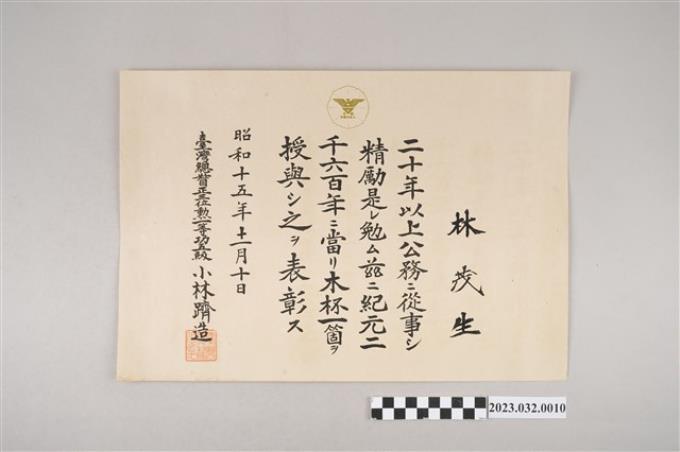 林茂生
二十年以上公務ニ從事シ
精勵是レ勉ム茲ニ紀元二
千六百年ニ當リ木杯一箇ヲ
授與シ之ヲ表彰ス
昭和十五年十一月十日
臺灣總督正三位勲一等功五級 小林躋造
2023.032.0010